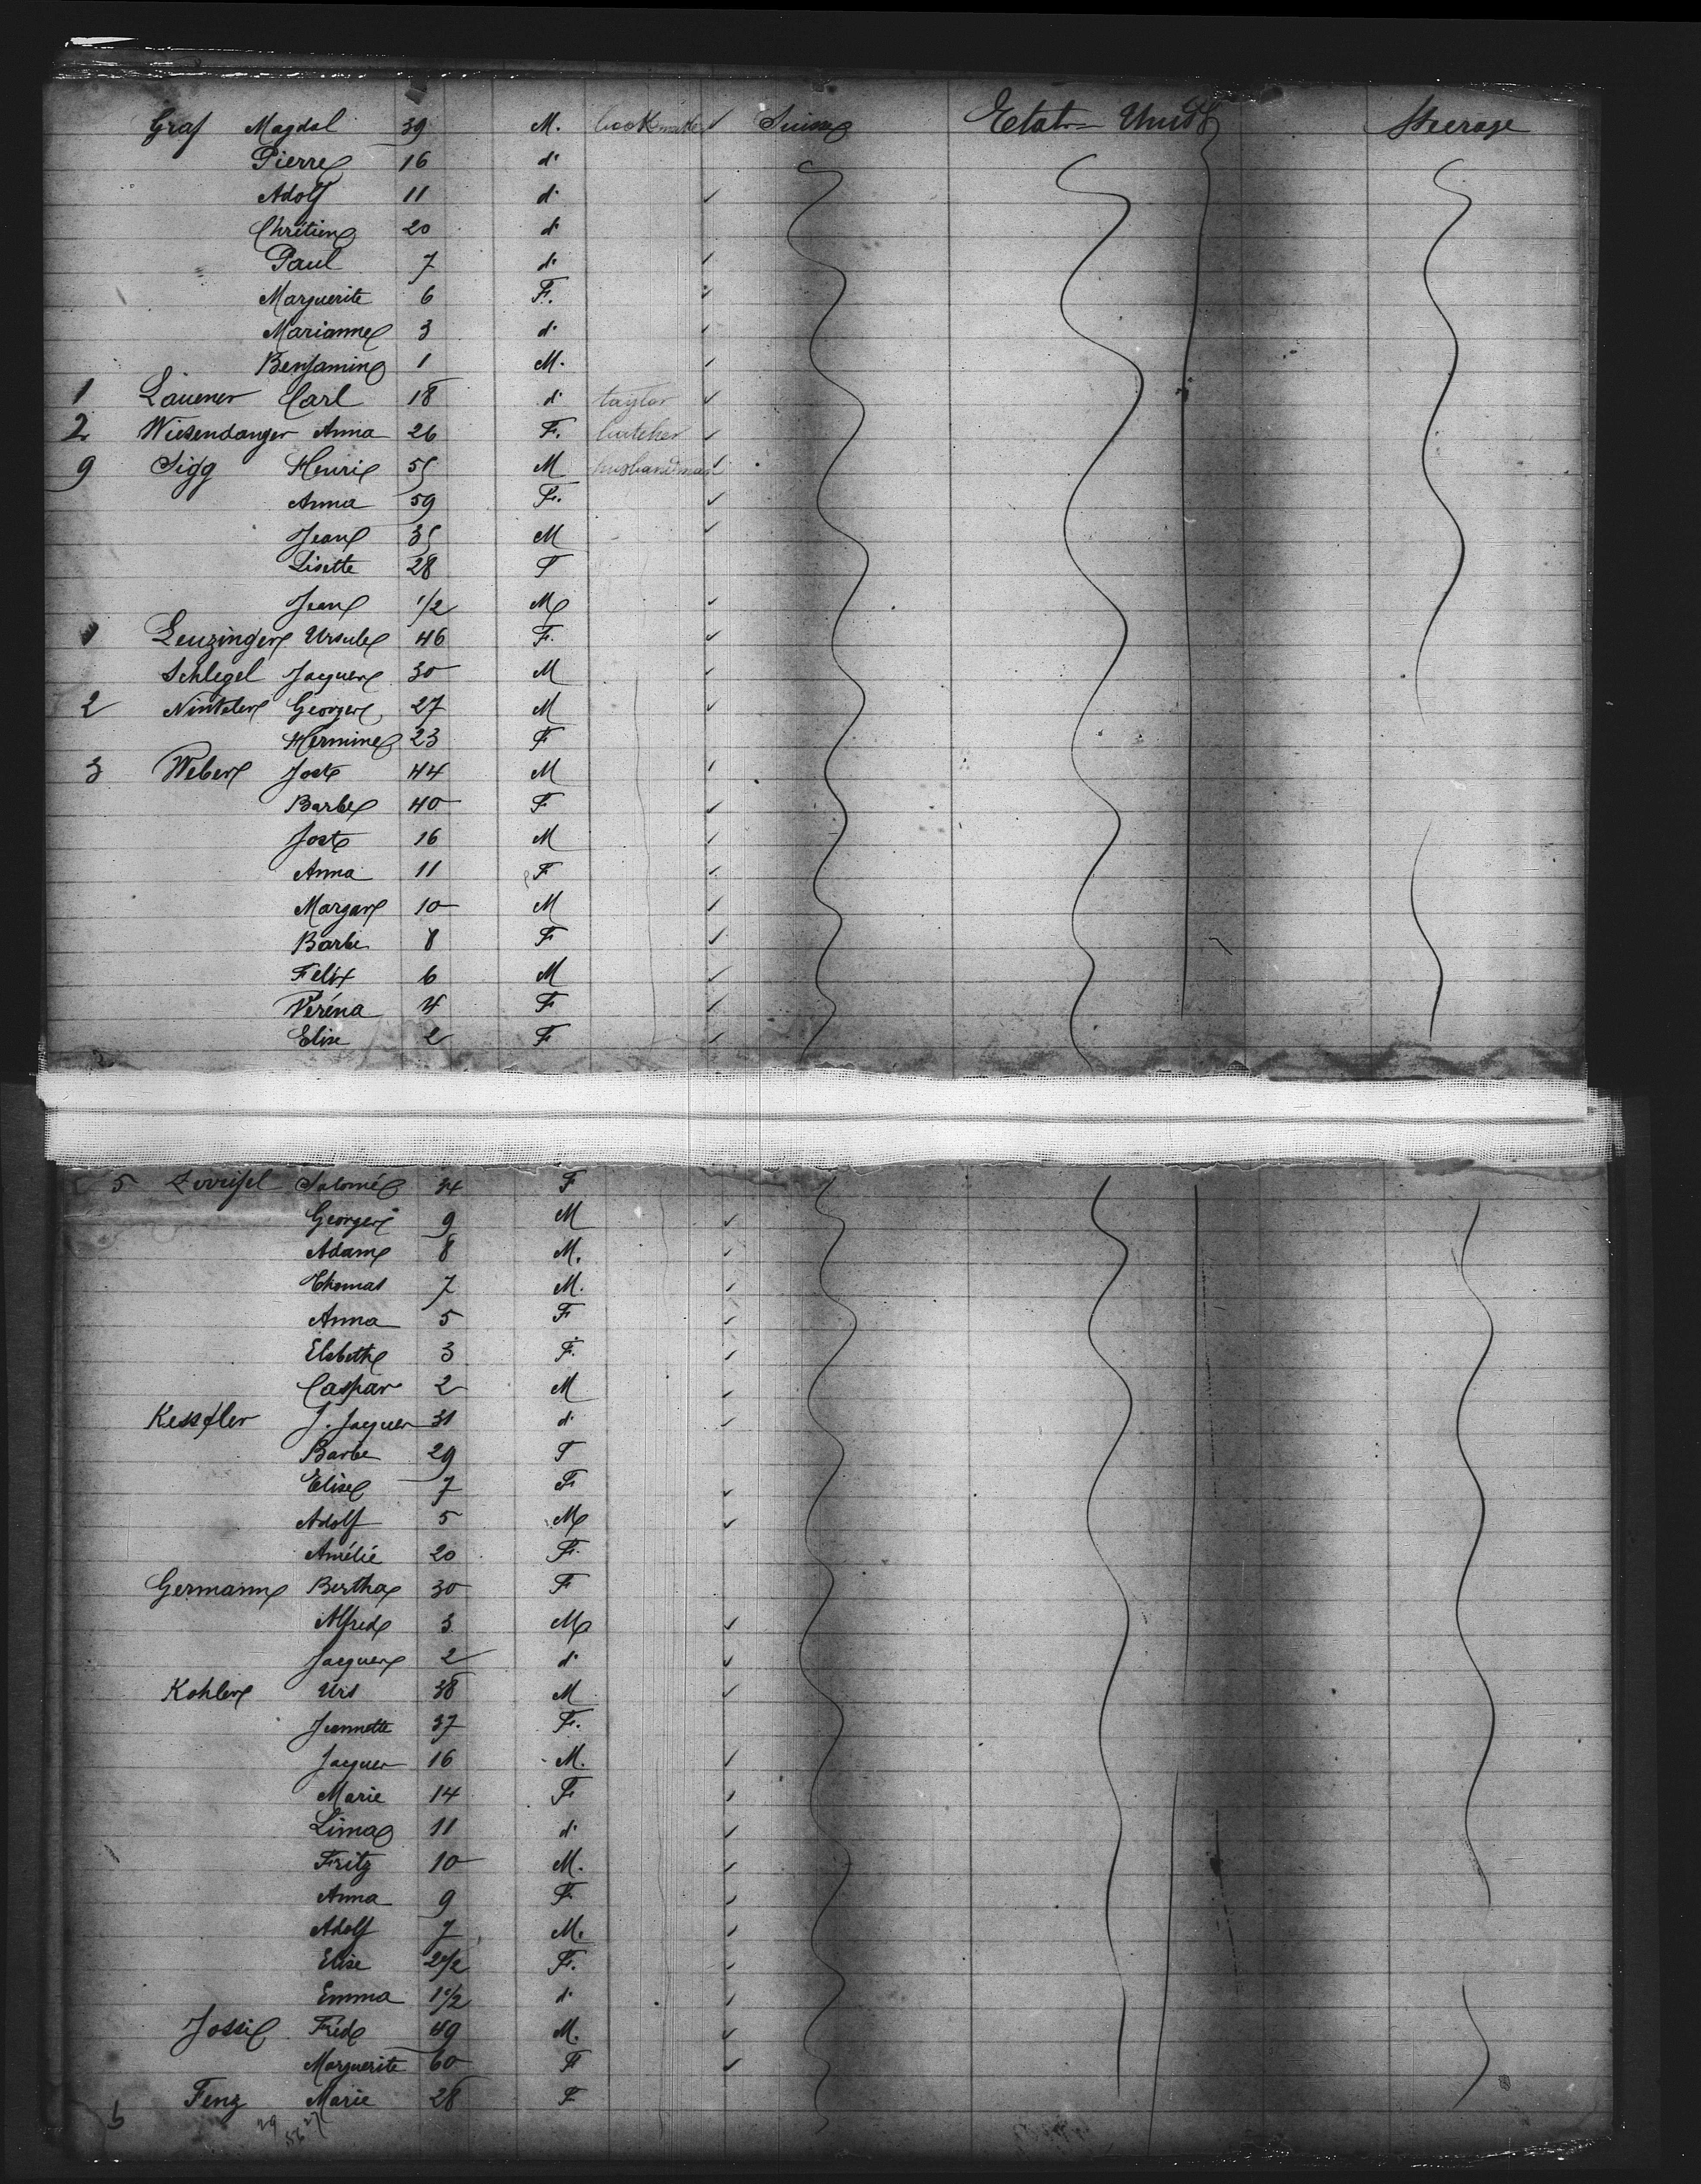 Graf Magdal 39 M. bookmaker Suisse Etats-Unis Steerage
Pierre 16 d°
Adolf 11 d°
Chrétien 20 d°
Paul 7 d°
Marguerite 6 F.
Marianne 3 d°
Benjamin 1 M.
1 Lauener Carl 18 d° taylor
2 Wiesendanger Anna 26 F. butcher
9 Sigg Henri 55 M husbandman
Anna 59 F.
Jean 35 M
Lisette 28 F
Jean 1/2 M
1 Leuzinger Ursule 46 F.
Schlegel Jaques 30 M
2 Georges 27 M
Hermine 23 F
3 Weber Jost 44 M
Barbe 40 F
Jost 16 M
Anna 11 F
Margar 10 M
Barbe 8 F
Felix 6 M
Véréna 4 F
Elise 2 F
5 Salomé 34 F
Georges 9 M
Adam 8 M.
Thomas 7 M.
Anna 5 F
Elsbeth 3 F.
Caspar 2 M
Kessler J. Jaques 31 d°
Barbe 29 F
Elise 7 F
Adolf 5 M
Amélie 20 F.
Germann Bertha 30 F
Alfred 3 M
Jacques 2 d°
Kohler Urs 38 M
Jeannette 37 F.
Jaques 16 M.
Marie 14 F
Lina 11 d°
Fritz 10 M.
Anna 9 F
Adolf 7 M.
Elise 2 1/2 F.
Emma 1 1/2 d°
Jossi Fréd 49 M.
Marguerite 60 F
Fenz Marie 28 F
29 27
56